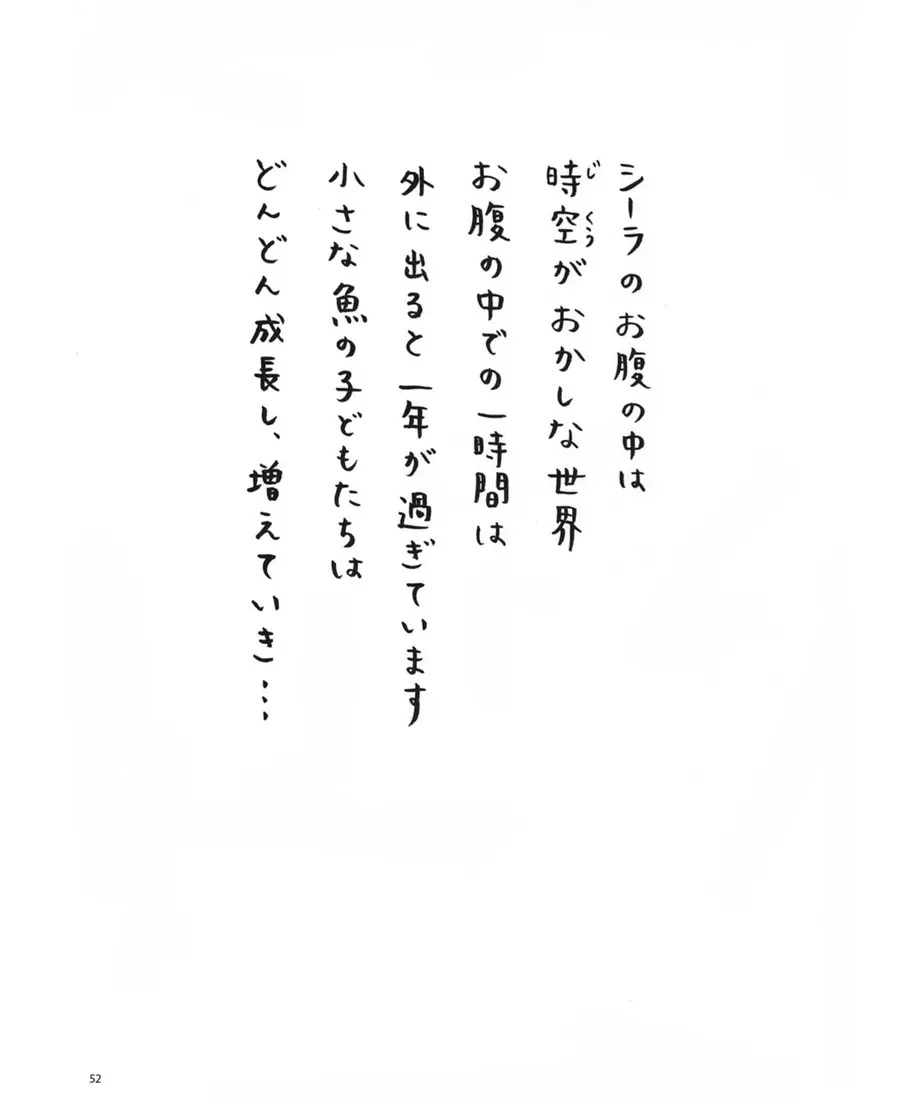 シーラのお腹の中は
時空がおかしな世界
じくう
お腹の中での一時間は
外に出ると一年が過ぎています
小さな魚の子どもたちは
どんどん成長し、増えていき…
52